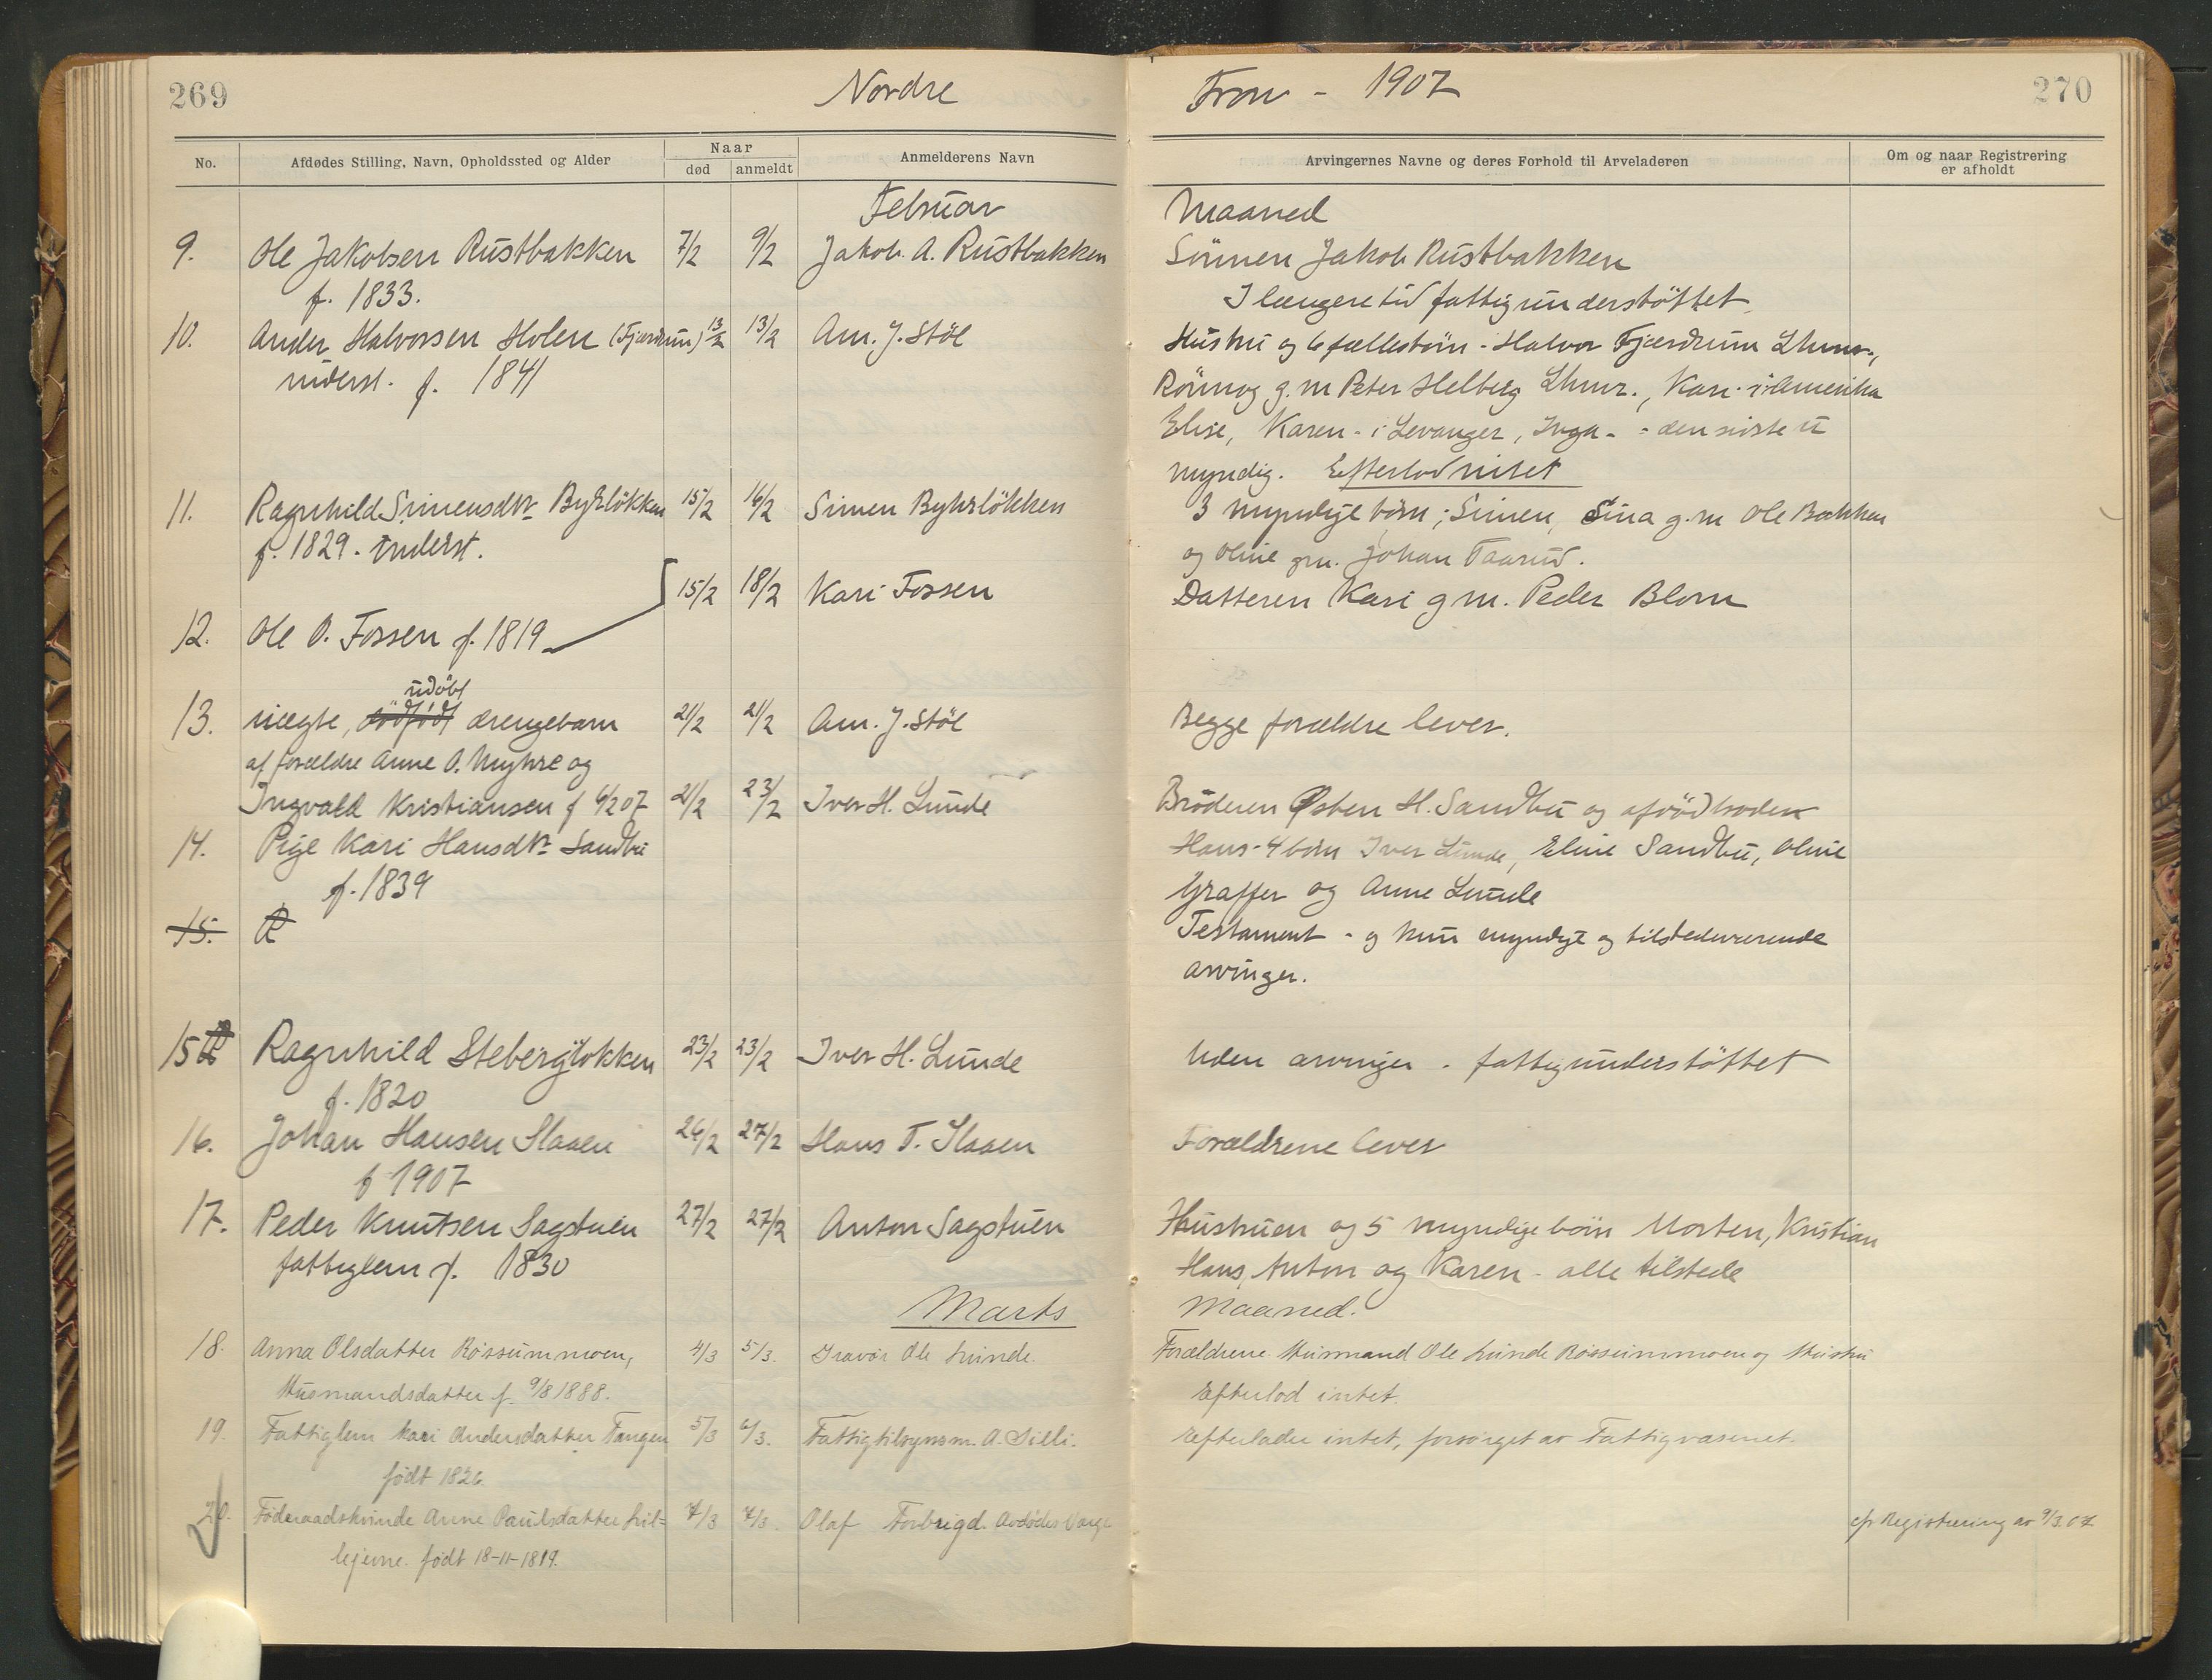 269
Nordre
Fron - 1907
270
No.
Afdødes Stilling, Navn, Opholdssted og Alder
Naar
død
anmeldt
Anmelderens Navn
Arvingernes Navne og deres Forhold til Arveladeren
Om og naar Registrering
er afholdt
Februar
Maaned
9. Ole Jakobsen Rustbakken 7/2 9/2 Jakob A. Rustbakken Sönnen Jakob Rustbakken
f. 1833. I længere tid fattigunderstöttet
10. Ander Halvorsen Holen (Fjærdrum) 13/2 13/2 Am. J. Stöl Hustru og 6 fællesbörn - Halvor Fjærdrum Lhmr.,
underst. f. 1841 Rönnog g. m Peter Helberg Lhmr., Kari - i Amerika
Elise, Karen - i Levanger, Inga - - den sidste u
myndig. Efterlod intet
11. Ragnhild Simensdtr Byhrlökken 15/2 16/2 Simen Byhrlökken 3 myndige börn; Simen, Sina g. m Ole Bakken
f. 1829. underst. og Oline gm. Johan Taarud.
15/2 18/2 Kari Fossen Datteren Kari g m. Peder Blom
12. Ole O. Fossen f. 1819
udöbt
13. uægte, dödfödt drengebarn 21/2 21/2 Am. J. Stöl Begge forældre lever.
af forældre Anne O. Myhre og
Ingvald Kristiansen f 6/2 07 21/2 23/2 Iver H. Lunde Bröderen Østen H. Sandbu og afdöd broder
14. Pige Kari Hansdtr Sandbu Hans - 4 börn Iver Lunde, Eline Sandbu, Oline
f. 1839 Graffer og Anne Lunde
15. P Testament - og kun myndige og tilstedeværende
arvinger.
15 Ragnhild Steberglökken 23/2 23/2 Iver H. Lunde Uden arvinger - fattigunderstöttet
f. 1820
16. Johan Hansen Slaaen 26/2 27/2 Hans T. Slaaen Forældrene lever
f 1907
17. Peder Knutsen Sagstuen 27/2 27/2 Anton Sagstuen Hustruen og 5 myndige börn Morten, Kristian
fattiglem f. 1830 Hans, Anton og Karen - alle tilstede
Marts
Maaned.
18. Anna Olsdatter Røssummoen, 4/3 5/3. Gravör Ole Lunde. Forældrene Husmand Ole Lunde Røssummoen og Hustru
Husmandsdatter f. 9/8 1888. Efterlod intet.
19. Fattiglem Kari Andersdatter Tangen 5/3 6/3. Fattigtilsynsm. A. Silli. Efterlader intet, forsørget av Fattigvæsenet.
født 1826.
20. Føderaadskvinde Anne Paulsdatter Lil= 7/3 7/3. Olaf Forbrigd. Avdødes Værge cfr Registrering av 9/3.07
lejerne. født 18-11-1819.